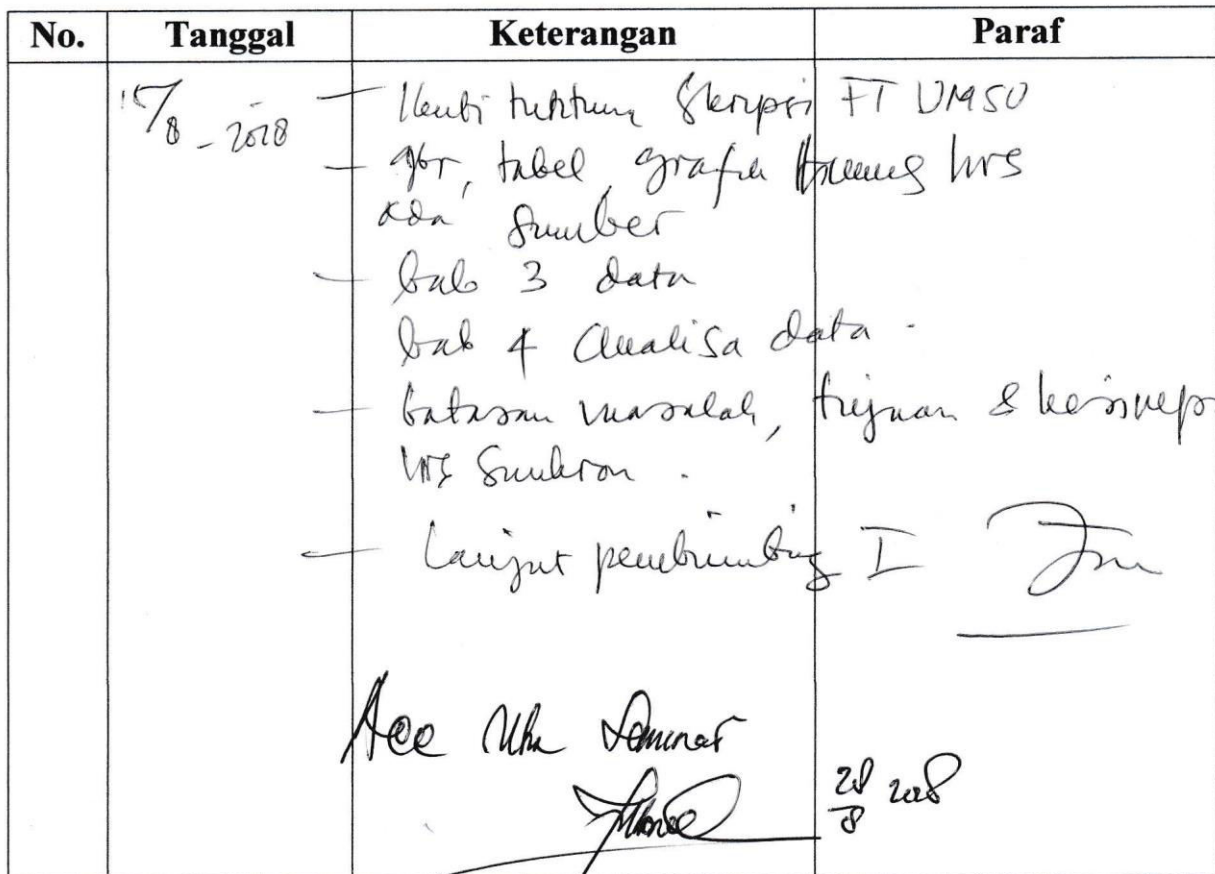 No. Tanggal Keterangan Paraf
15/8 - 2018 - Skripsi FT UMSU
- gbr, tabel, grafik hrs
ada Sumber
- bab 3 data
bab 4 Analisa data.
- batasan masalah, tujuan & kesimp
hrs Sinkron.
- Lanjut pembimbing I
Acc Utk Seminar
28/8 2018